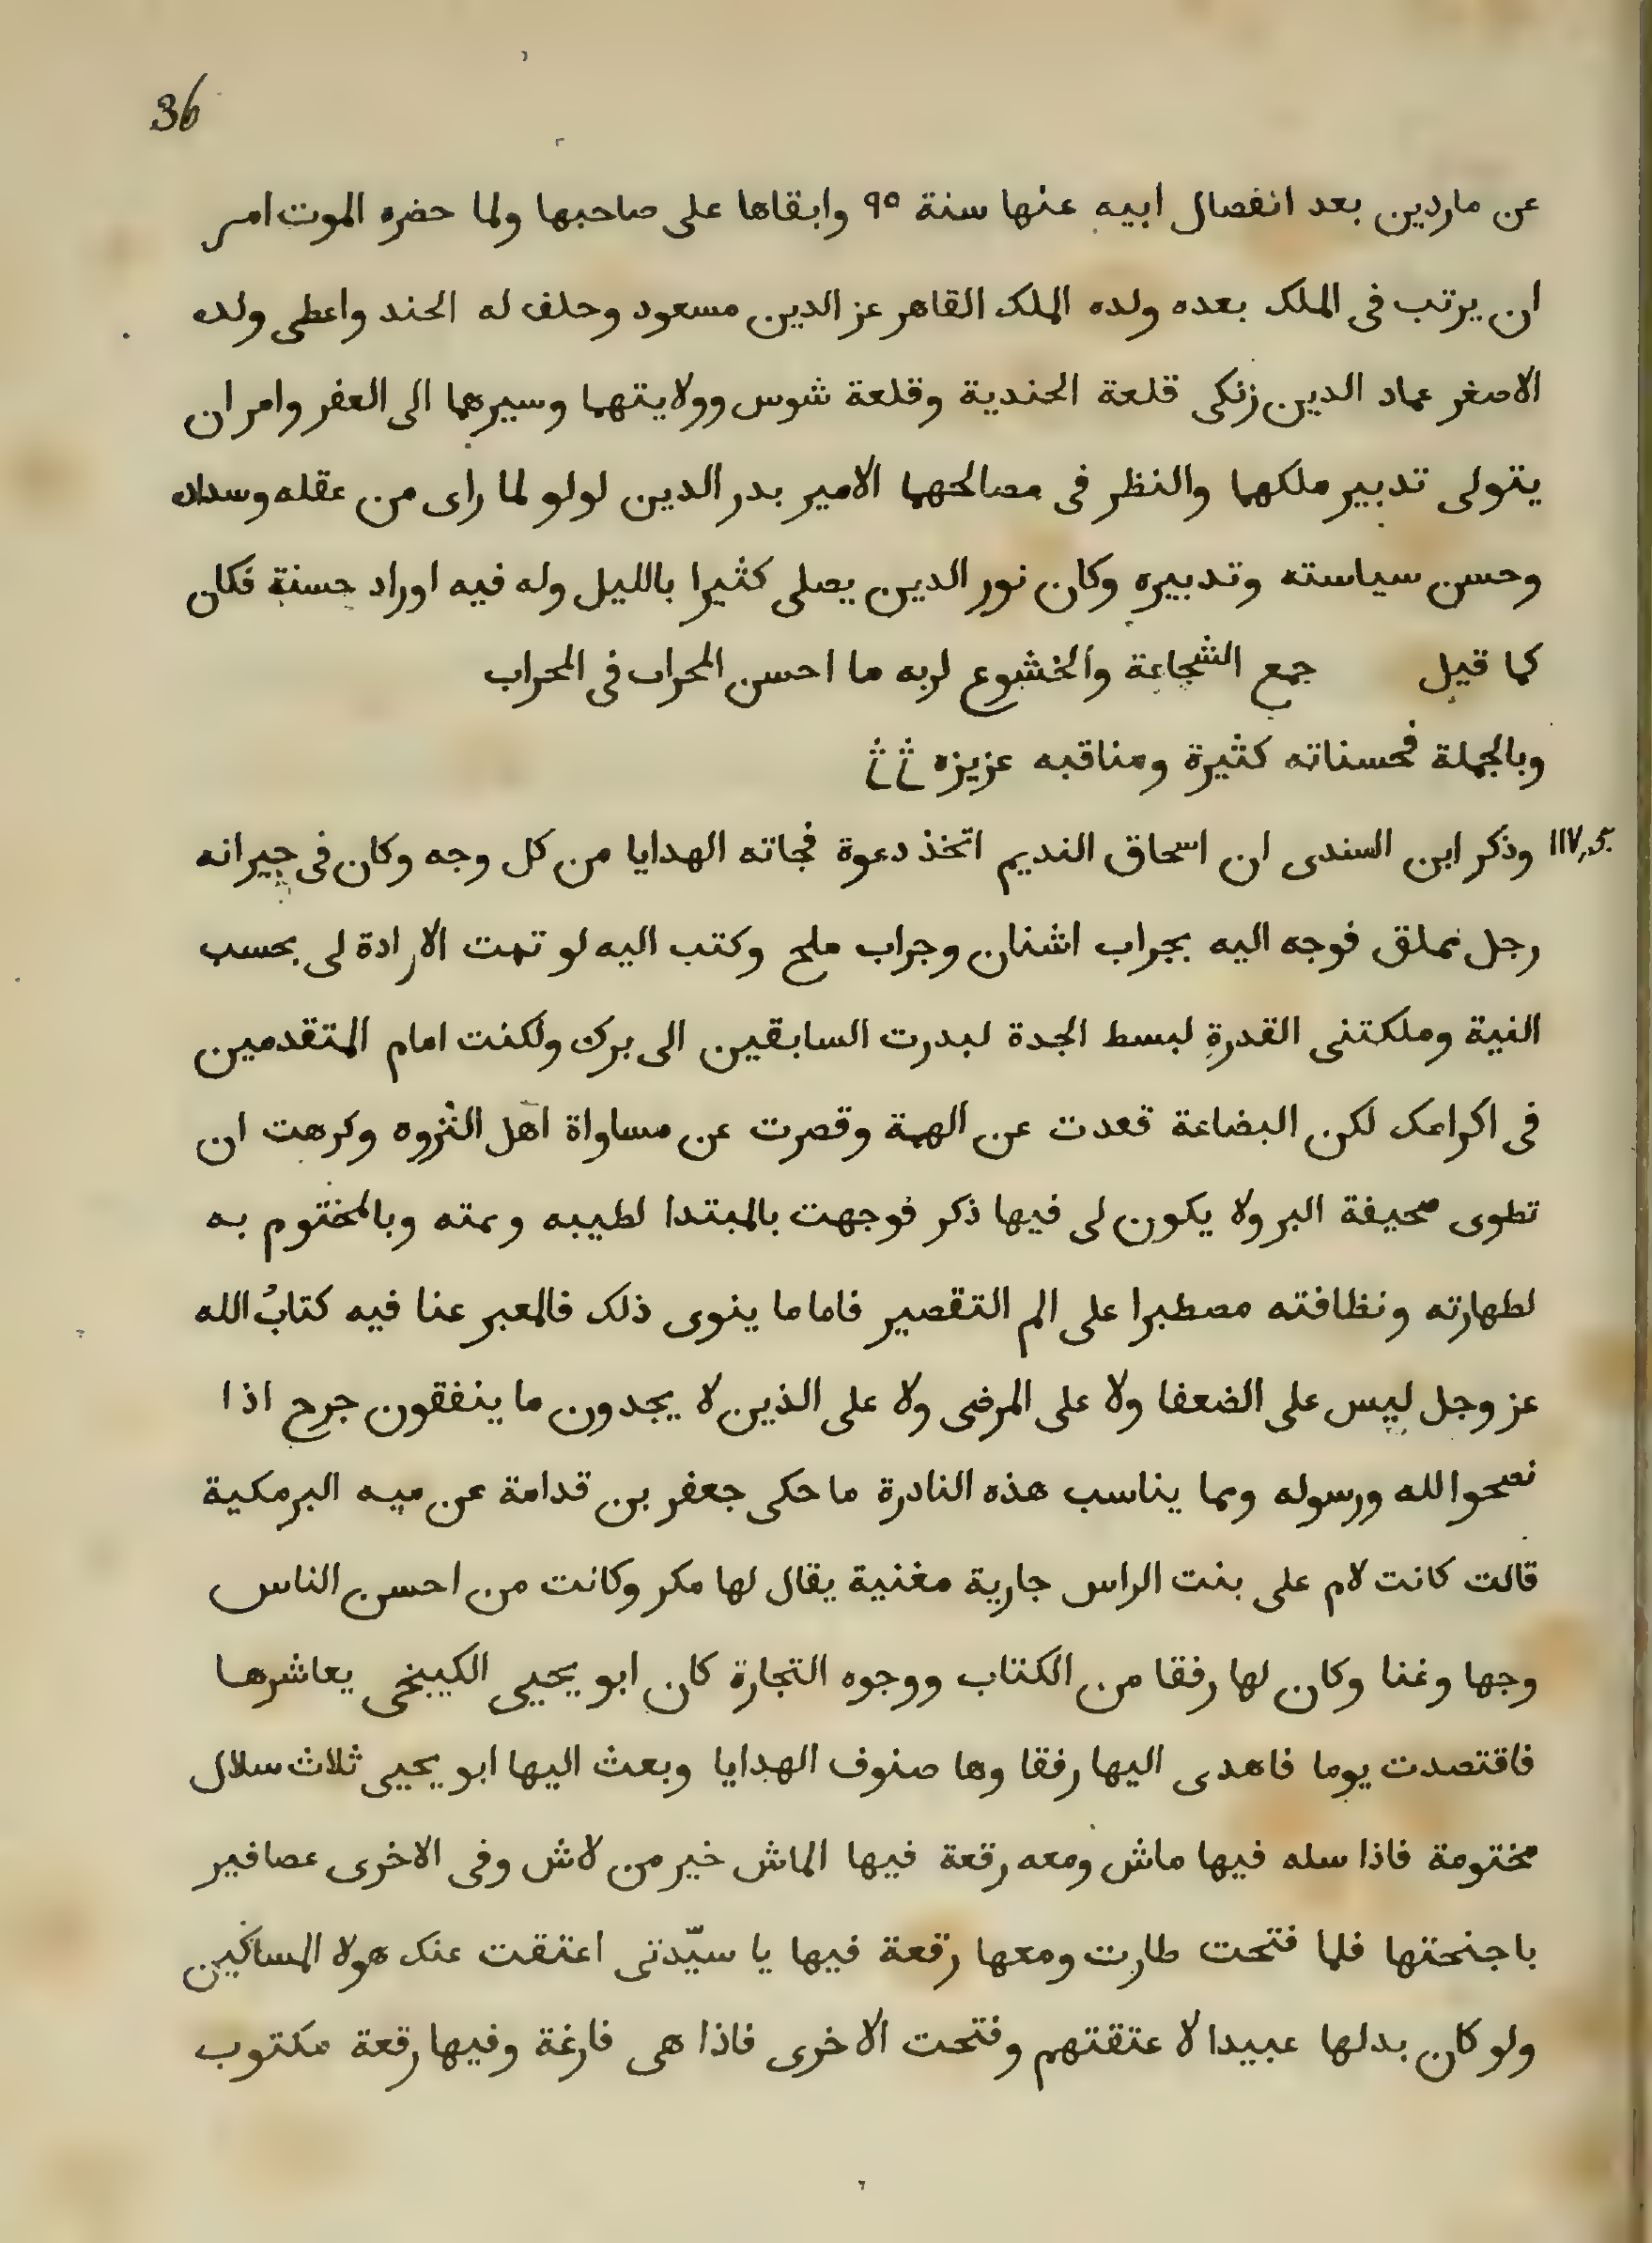 36
عن ماردين بعد انفصال ابيه عنها سنة ٩٥ وابقاها على صاحبها ولما حضره الموت امر
ان يرتب فى الملك بعده ولده الملك القاهر عز الدين مسعود وحلف له الحند واعطى ولده
الاصغر عماد الدين زنكى قلعة الحندية وقلعة شوس وولايتهما وسيرهما الى العفر وامر ان
يتولى تدبير ملكهما والنظر فى مصالحهما الامير بدر الدين لولو لما راى من عقله وسداده
وحسن سياسته وتدبيره وكان نور الدين يصلى كثيرا بالليل وله فيه اوراد حسنة فكان
كما قيل جمع الشجاعة والخشوع لربه ما احسن المحراب فى المحراب
وبالجملة فحسناته كثيرة ومناقبه عزيزه
وذكر ابن السندى ان اسحاق النديم اتخذ دعوة فجاته الهدايا من كل وجه وكان فى جيرانه
رجل مملق فوجه اليه بجراب اشنان وجراب ملح وكتب اليه لو تمت الارادة لى بحسب
النية وملكتنى القدرة لبسط الجدة لبدرت السابقين الى برك ولكنت امام المتقدمين
فى اكرامك لكن البضاعة قعدت عن الهمة وقصرت عن مساواة اهل الثروه وكرهت ان
تطوى صحيفة البر ولا يكون لى فيها ذكر فوجهت بالمبتدا لطيبه ويمنه وبالمختوم به
لطهارته ونظافته مصطبرا على الم التقصير فاما ما ينوى ذلك فالمعبر عنا فيه كتابُ الله
عز وجل ليس على الضعفا ولا على المرضى ولا على الذين لا يجدون ما ينفقون حرج اذا
نصحوا لله ورسوله ومما يناسب هذه النادرة ما حكى جعفر بن قدامة عن ميه البرمكية
قالت كانت لام على بنت الراس جارية مغنية يقال لها مكر وكانت من احسن الناس
وجها وغنا وكان لها رفقا من الكتاب ووجوه التجارة كان ابو يحيى الكيبخى يعاشرها
فاقتصدت يوما فاهدى اليها رفقا وها صنوف الهدايا وبعث اليها ابو يحيى ثلاث سلال
مختومة فاذا سله فيها ماش ومعه رقعة فيها الماش خير من لاش وفى الاخرى عصافير
باجنحتها فلما فتحت طارت ومعها رقعة فيها يا سيّدتى اعتقت عنك هولا المساكين
ولو كان بدلها عبيدا لاعتقتهم وفتحت الاخرى فاذا هى فارغة وفيها رقعة مكتوب